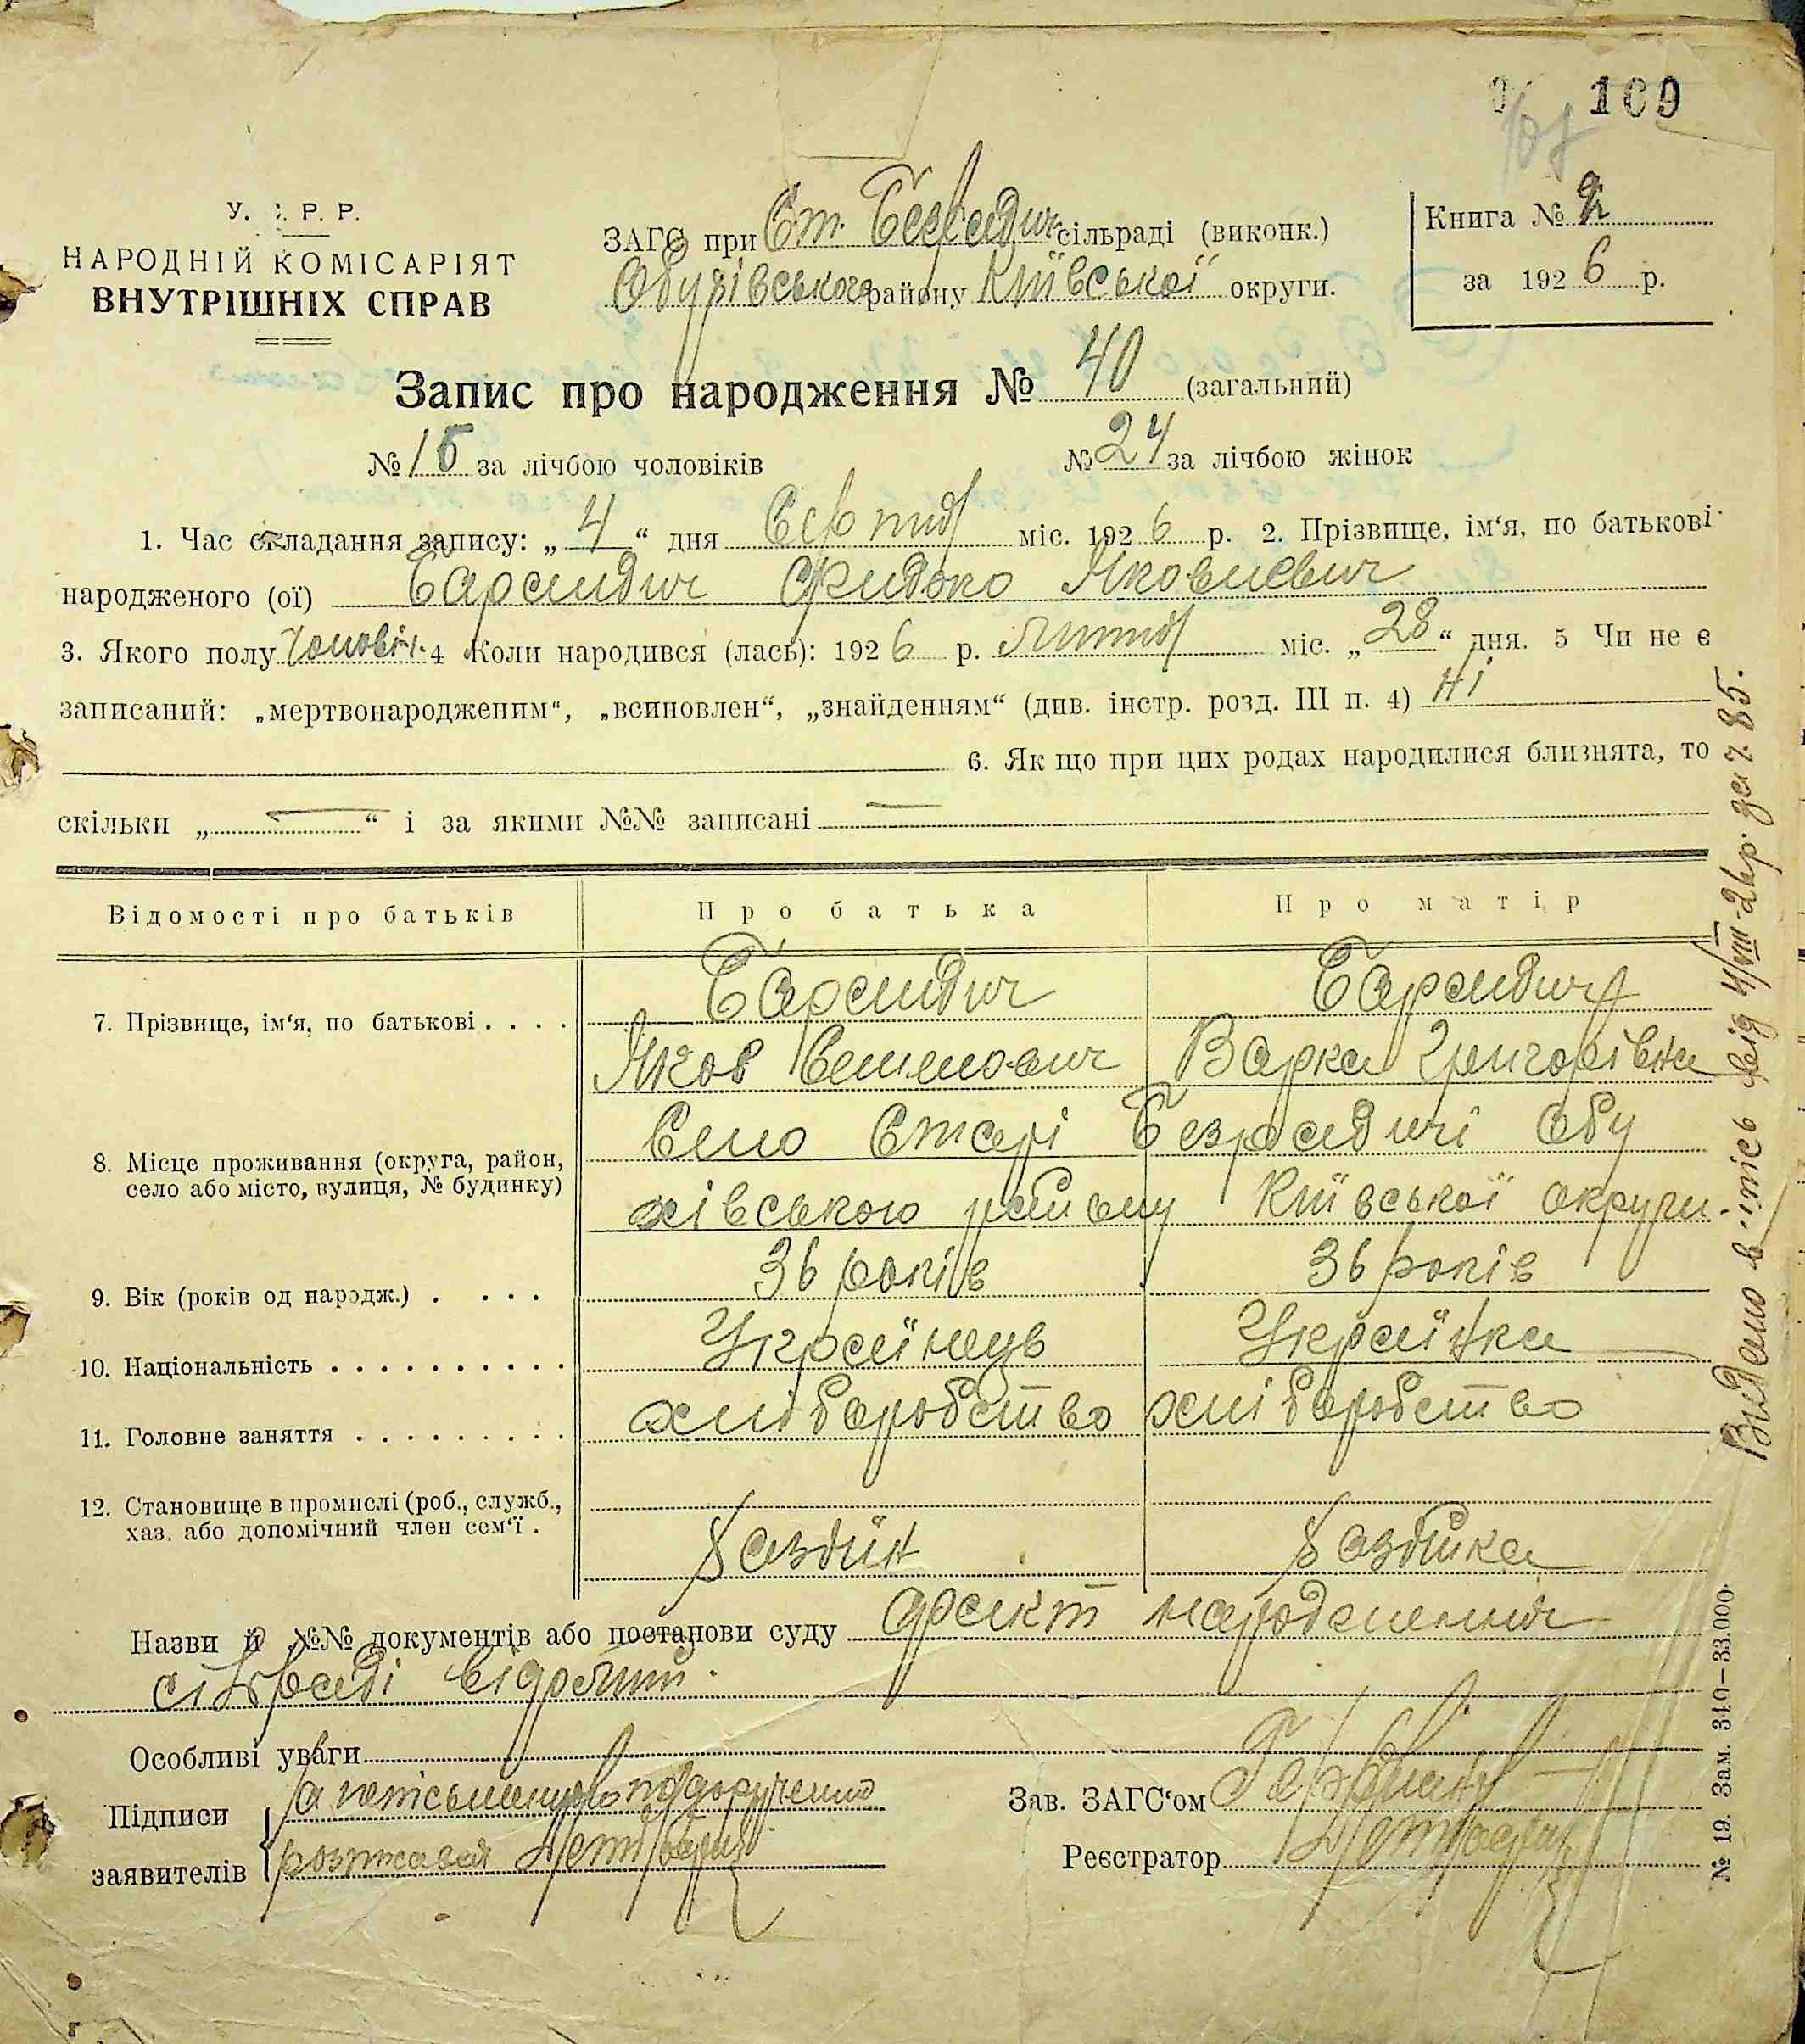 109
У. . Р. Р.
НАРОДНІЙ КОМІСАРІЯТ
ВНУТРІШНІХ СПРАВ
ЗАГС при Ст. Безрадич сільраді (виконк.)
Обухівського району Київської округи.
Книга №
за 1926 р.
Запис про народження № 40 (загальний)
№ 15 за лічбою чоловіків
№ 24 за лічбою жінок
1. Час складання запису: „ 4 “ дня Серпня міс. 1926 р. 2. Прізвище, ім‘я, по батькові
народженого (ої) Яковлевич
3. Якого полу Чоловіч. 4 Коли народився (лась): 1926 р. Липня міс. „ 28 “ дня. 5 Чи не є
записаний: „мертвонародженим“, „всиновлен“, „знайденням“ (див. інстр. розд. III п. 4) Ні
6. Як що при цих родах народилися близнята, то
скільки „ — “ і за якими №№ записані —
Відомості про батьків
Про батька
Про матір
7. Прізвище, ім‘я, по батькові . . . .
Яков Семенович
Варка Григорівна
8. Місце проживання (округа, район,
село або місто, вулиця, № будинку)
Село Старі Безрадичі Обу
хівського району Київської округи.
9. Вік (років од народж.) . . . .
36 років
36 років
10. Національність . . . . . . . . . .
Українець
Українка
11. Головне заняття . . . . . . . . .
хліборобство
хліборобство
12. Становище в промислі (роб., служб.,
хаз. або допомічний член сем‘ї .
Хазяїн
Хазяйка
Назви й №№ документів або постанови суду факт народження
сільраді відомий.
Особливі уваги
Підписи
заявителів
а неписьменного по дорученню
розписався
Зав. ЗАГС‘ом
Реєстратор
№ 19. Зам. 340—33.000.
Видано в від 4/VIII-26р. за ч. 85.